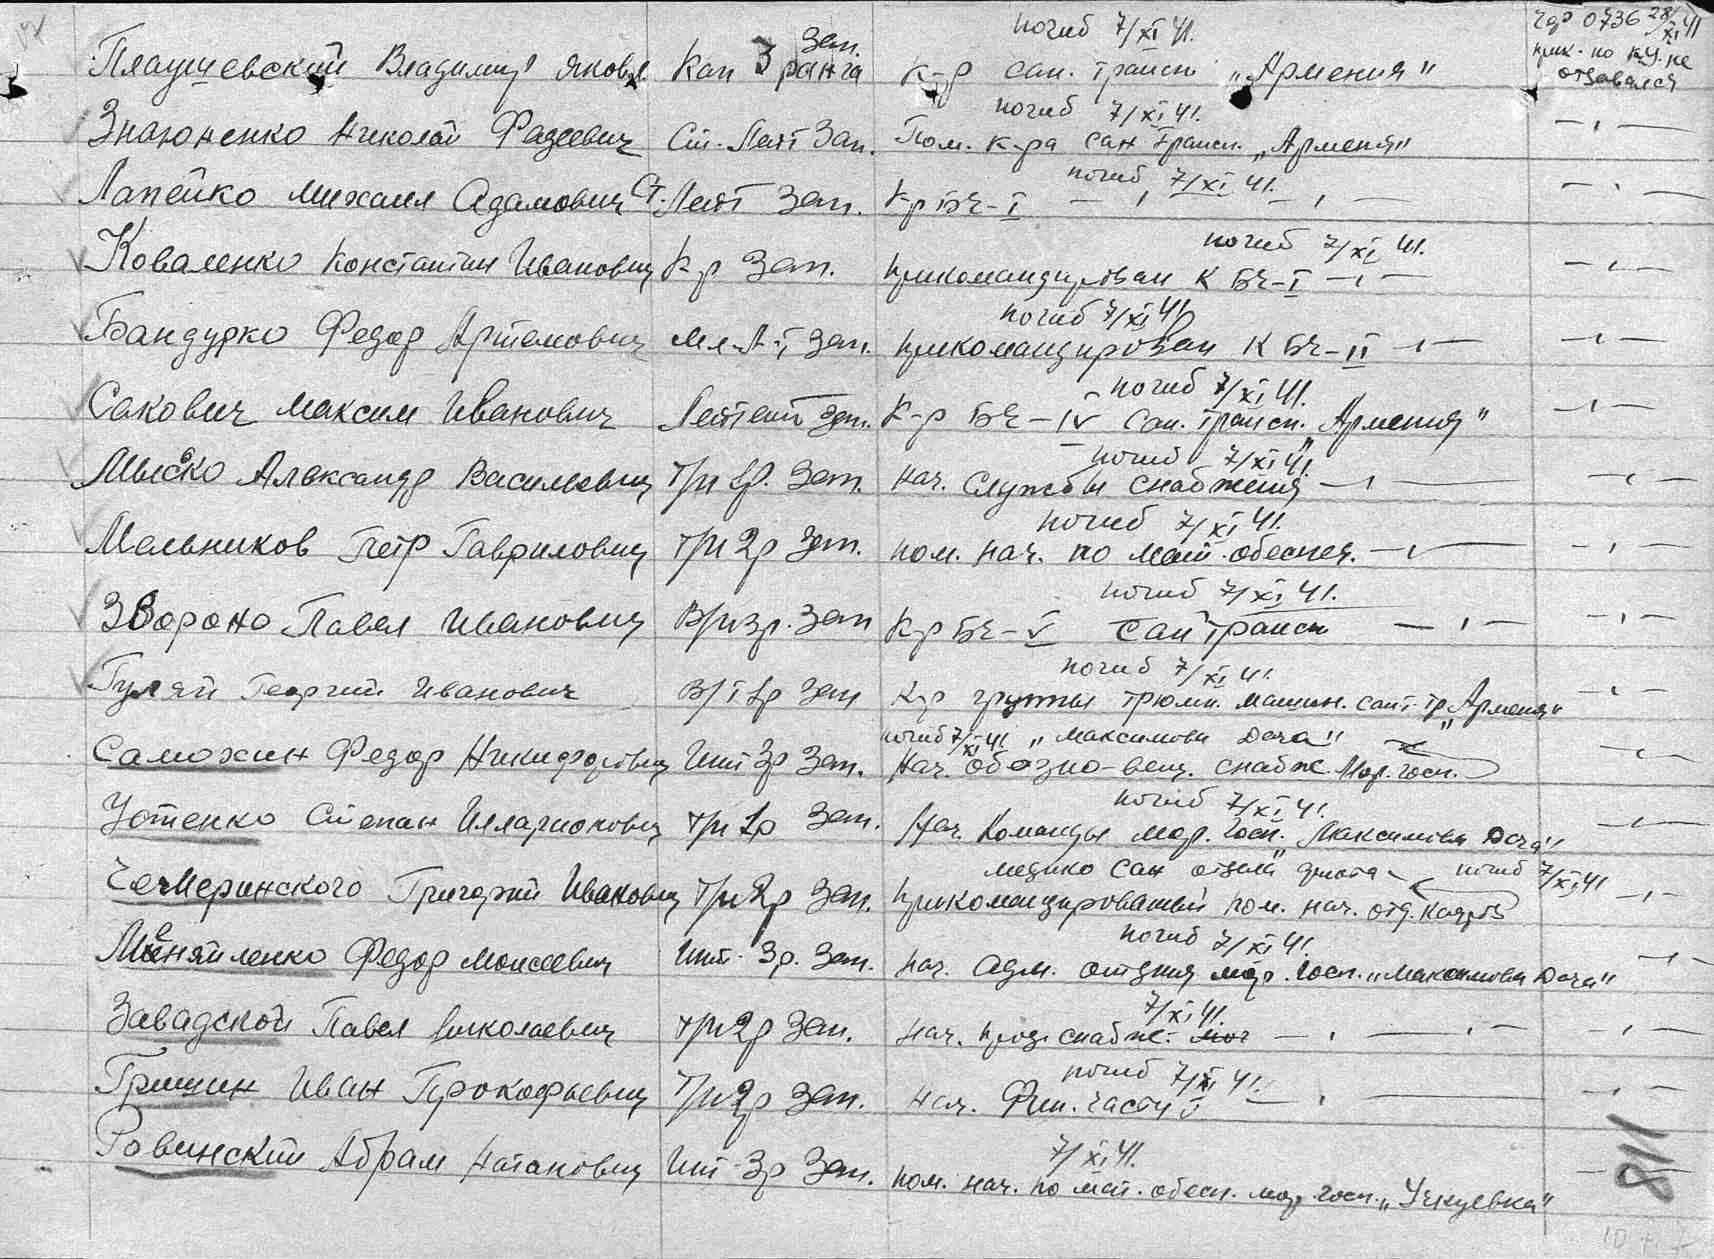 погиб 7/XI 41. 0736 28/XI 41
Плаушевский Владимир Яковл Кап 3 ранга Зап. К-р сан. трансп "Армения" прик. по не отзовался
погиб 7/XI 41.
Знаюненко Николай Фадеевич Ст. Лейт Зап. Пом. К-ра сан трансп. "Армения" — " —
погиб 7/XI 41.
Лапейко Михаил Адамович Ст. Лейт Зап. К-р БЧ-I — " — — " — — " —
погиб 7/XI 41.
Коваленко Константин Иванович К-р Зап. прикомандирован к БЧ-I — " — — " —
погиб 7/XI 41
Бандурко Федор Артемович Мл. Л-т Зап. прикомандирован к БЧ-II — " — — " —
погиб 7/XI 41.
Сакович Максим Иванович Лейтент Зап. К-р БЧ-IV сан. трансп. "Армения" — " —
погиб 7/XI 41.
Мыско Александр Васильевич Т/и 1р. Зап. нач. службы снабжения — " — — " —
погиб 7/XI 41.
Мельников Петр Гаврилович Т/и 2р Зап. пом. нач. по мат. обеспеч. — " — — " —
погиб 7/XI 41.
Звороно Павел Иванович В/и 3р. Зап К-р БЧ-V сан трансп — " — — " —
погиб 7/XI 41.
Гуляй Георгий Иванович В/т 1р Зап К-р группы трюмн. машин. сант. тр "Армения" — " —
погиб 7/XI 41 "Максимова Дача"
Самохин Федор Никифорович Инт 3р Зап. Нач. обозно-вещ. снабж. Мор. госп. — " —
погиб 7/XI 41.
Устенко Степан Илларионович Т/и 1р Зап. Нач. Команды мор. госп. "Максимова Дача" — " —
медико сан отдела флота погиб 7/XI 41
Чемеринского Григорий Иванович Т/и 2р Зап. прикомандированный пом. нач. отд. кадров — " —
погиб 7/XI 41.
Меняйленко Федор Моисеевич Инт. 3р. Зап. нач. адм. отдния мор. госп. "Максимова Дача" — " —
7/XI 41.
Завадской Павел Николаевич Т/и 2р Зап. нач. прод. снабж. — " — — " — — " —
погиб 7/XI 41.
Гришин Иван Прокофьевич Т/и 2р Зап. нач. Фин. части — " — — " —
7/XI 41.
Ровинский Абрам Натанович Инт. 3р Зап. пом. нач. по мат. обесп. мор. госп. "Учкуевка" — " —
118